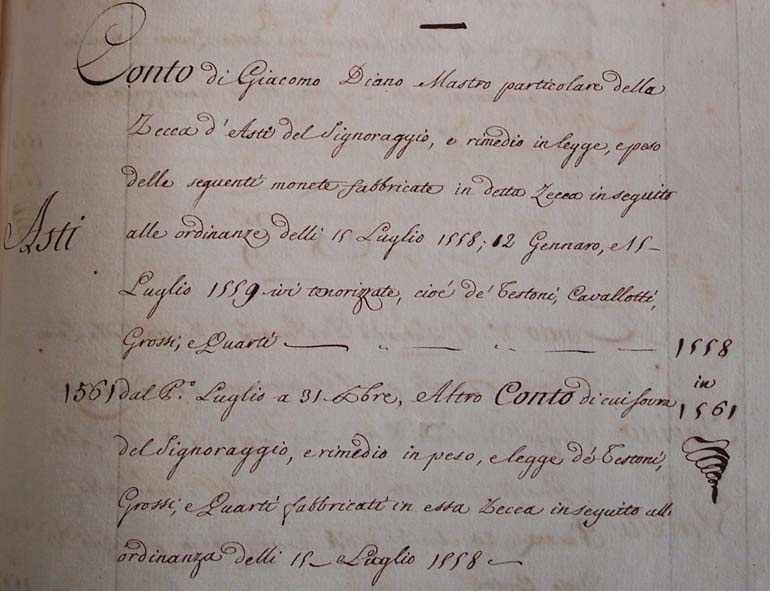 Conto di Giacomo Diano Mastro particolare della
Zecca d'Asti del Signoraggio, e rimedio in legge, e peso
delle seguenti monete fabbricate in detta Zecca in seguito
Asti
alle ordinanze delli 15 Luglio 1558; 12 Gennaro, e 15
Luglio 1559 ivi tenorizzate, cioé de' Testoni, Cavallotti,
Grossi, e Quarti
1558
in
1561
1561 dal P.º Luglio a 31 Xbre, Altro Conto di cui sovra
del Signoraggio, e rimedio in peso, e legge de' Testoni,
Grossi, e Quarti fabbricati in essa Zecca in seguito all'
ordinanza delli 15 Luglio 1558